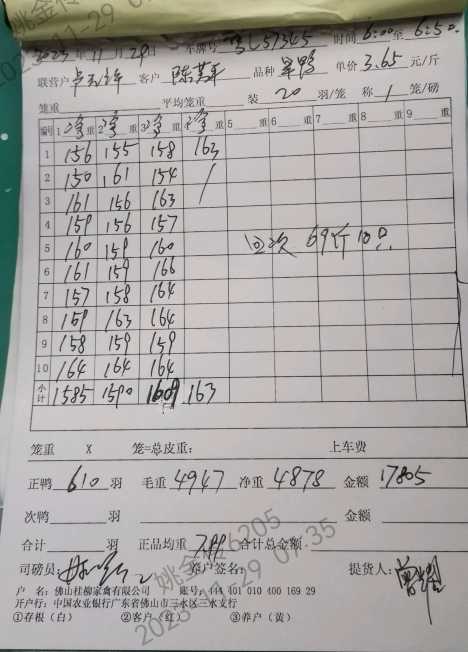 2023年11月29日 车牌号 3L57345 时间 6:00至 6:50
联营户 客户 品种 单鸭 单价 3.65 元/斤
笼重 平均笼重 装 20 羽/笼 称 1 笼/磅
编号 1 净重 2 净重 3 净重 4 净重 5 重 6 重 7 重 8 重 9 重
1 156 155 158 163
2 150 161 154
3 161 156 163
4 159 156 157
5 160 159 160 回次 69斤 10只
6 161 159 166
7 157 158 164
8 159 163 164
9 158 159 159
10 164 164 164
小计 1585 1590 1609 163
笼重 X 笼=总皮重: 上车费
正鸭 610 羽 毛重 4947 净重 4878 金额 17805
次鸭 羽 金额
合计 羽 正品均重 7.99 合计总金额
司磅员: 养户签名: 提货人:
户 名: 佛山桂柳家禽有限公司 账号: 444 401 010 400 169 29
开户行: 中国农业银行广东省佛山市三水区三水支行
①存根(白) ②客户(红) ③养户(黄)
姚金传 6205
2023-11-29 07:35